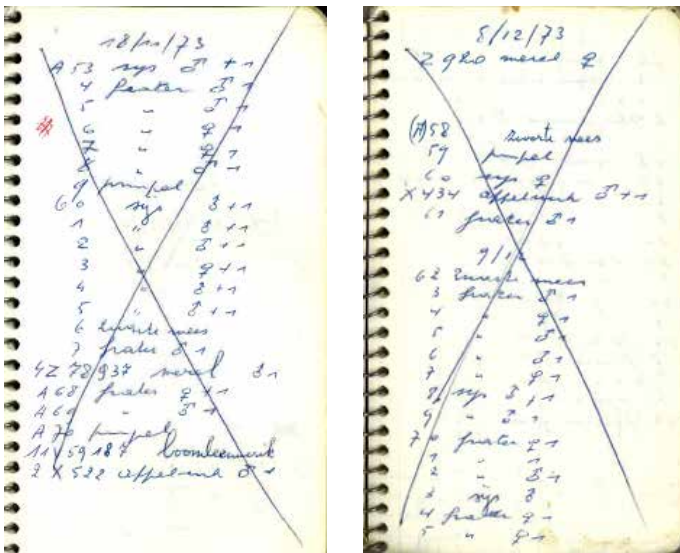 18/11/73
A 53 sys ♂ +1
4 frater ♂ 1
5 " ♂ 1
6 " ♀ 1
7 " ♀ 1
8 " ♂ 1
9 pimpel
60 sys ♂ +1
1 " ♂ +1
2 " ♂ +1
3 " ♀ +1
4 " ♂ -1
5 " ♂ +1
6 zwarte mees
7 frater ♂ 1
4Z 78937 merel ♂ 1
A 68 frater ♀ +1
A 69 " ♂ +1
A 70 pimpel
11Y 59187 boomleeuwerik
2 X 522 appelvink ♂ 1
8/12/73
Z 920 merel ♀
(A) 58 zwarte mees
59 pimpel
60 sys ♀
X 434 appelvink ♂ +1
61 frater ♂ 1
9/12
62 zwarte mees
3 frater ♂ 1
4 " ♀ 1
5 " ♂ 1
6 " ♂ 1
7 " ♀ 1
8 sys ♂ 1
9 " ♂ 1
70 frater ♀ 1
1 " 1
2 " ♂ 1
3 sys ♂
4 frater ♀ 1
5 " ♀ 1